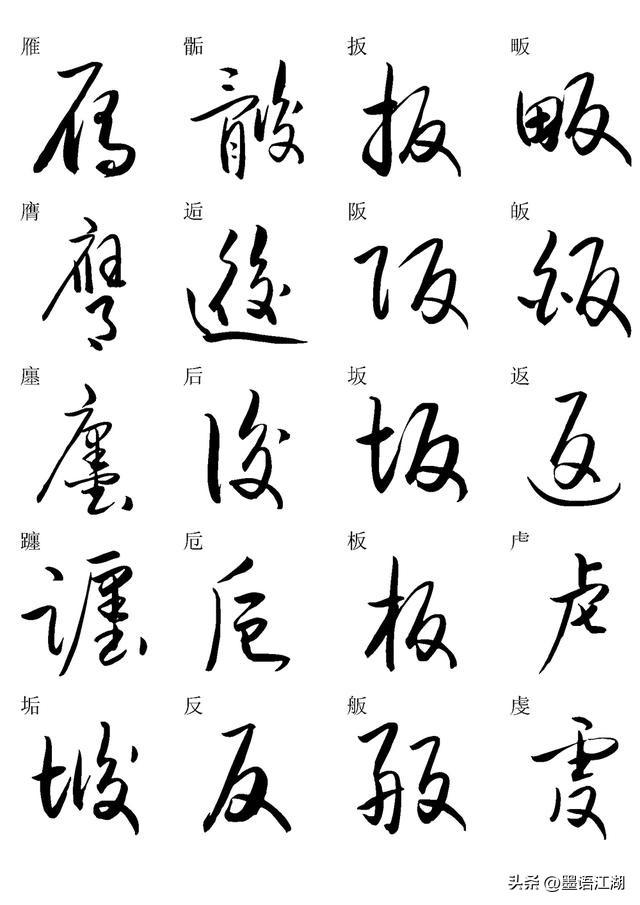 雁 骺 扳 畈
膺 逅 阪 皈
廛 后 坂 返
躔 卮 板 虍
垢 反 舨 虔
头条 @墨语江湖